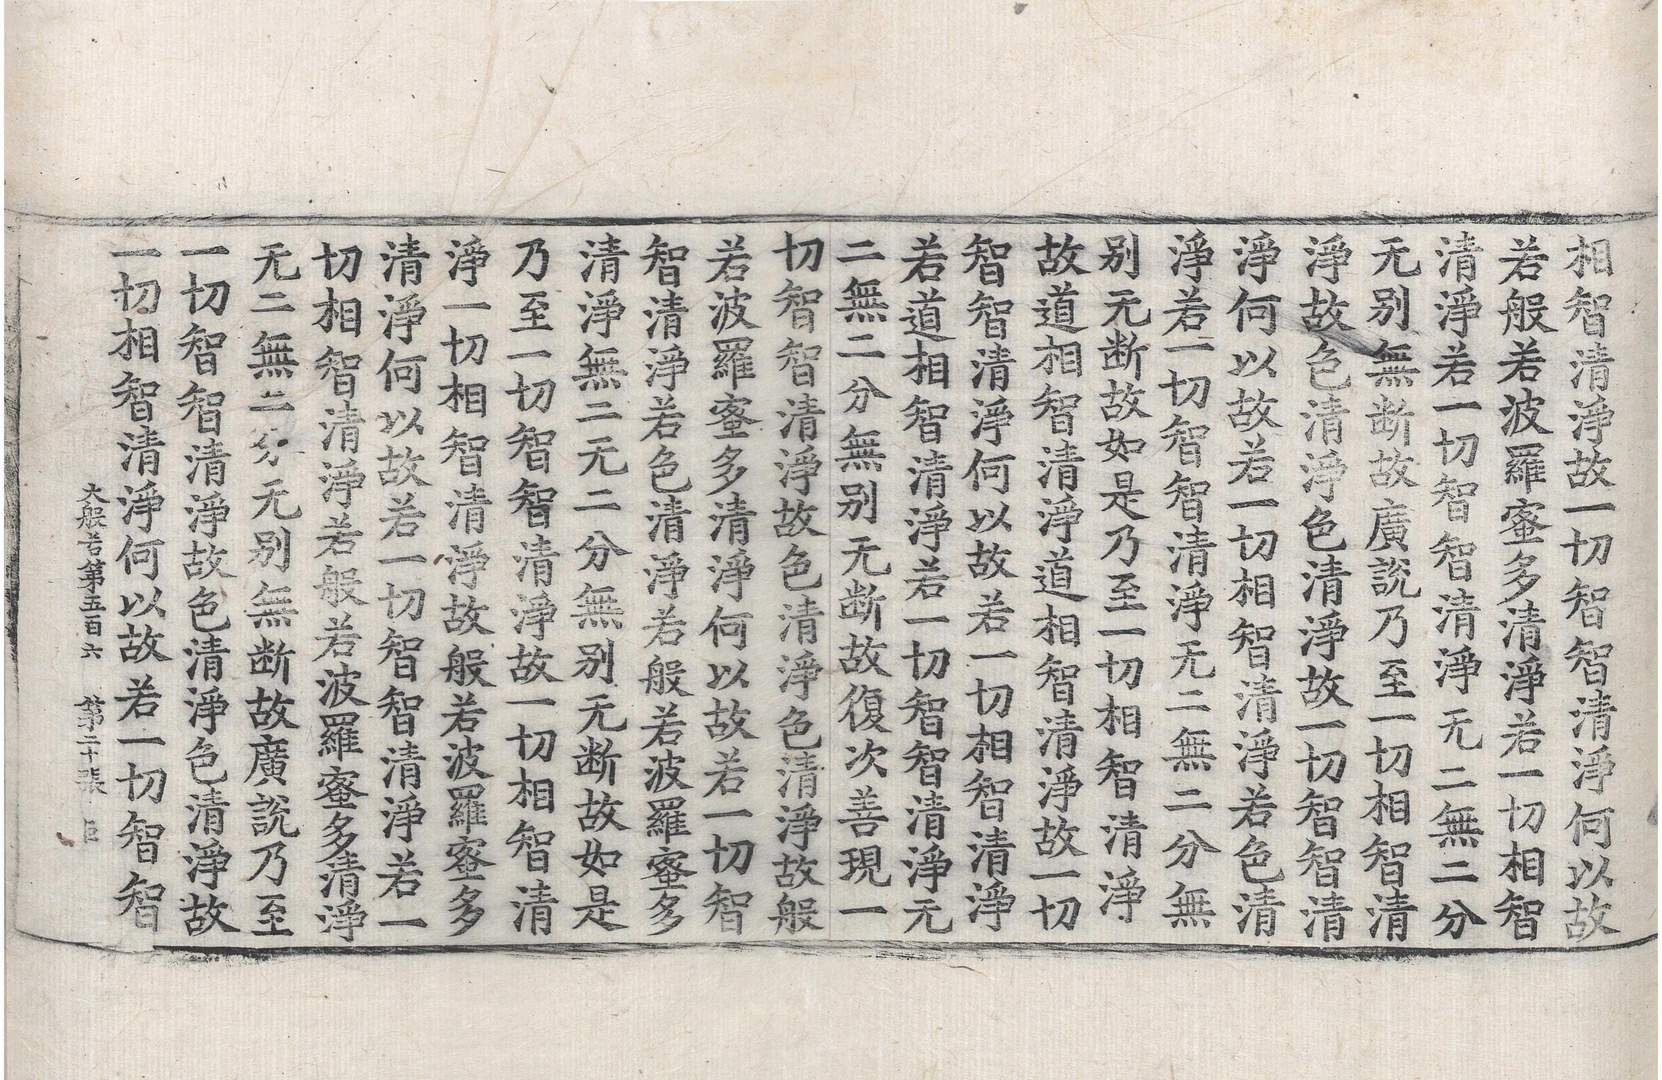 相智清淨故一切智智清淨何以故
若般若波羅蜜多清淨若一切相智
清淨若一切智智清淨无二無二分
无别無断故廣說乃至一切相智清
淨故色清淨色清淨故一切智智清
淨何以故若一切相智清淨若色清
淨若一切智智清淨无二無二分無
别无断故如是乃至一切相智清淨
故道相智清淨道相智清淨故一切
智智清淨何以故若一切相智清淨
若道相智清淨若一切智智清淨无
二無二分無别无断故復次善現一
切智智清淨故色清淨色清淨故般
若波羅蜜多清淨何以故若一切智
智清淨若色清淨若般若波羅蜜多
清淨無二无二分無别无断故如是
乃至一切智智清淨故一切相智清
淨一切相智清淨故般若波羅蜜多
清淨何以故若一切智智清淨若一
切相智清淨若般若波羅蜜多清淨
无二無二分无别無断故廣說乃至
一切智智清淨故色清淨色清淨故
一切相智清淨何以故若一切智智
大般若第五百六 第二十張